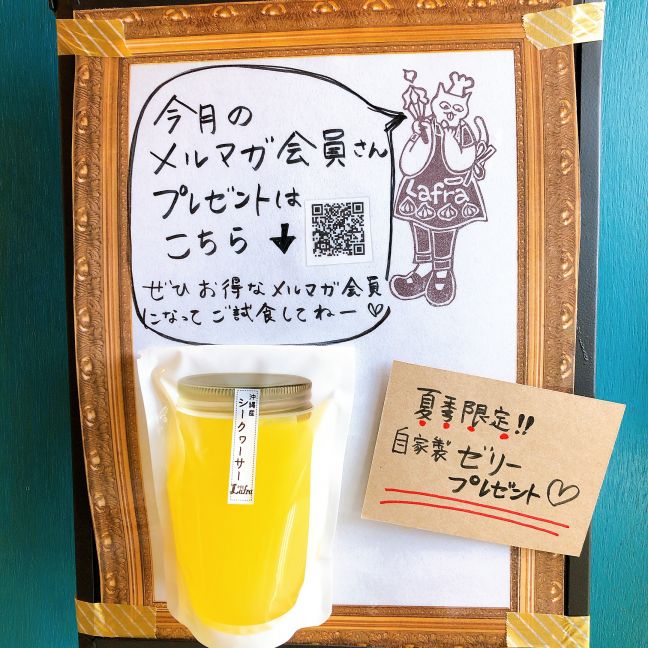 今月の
メルマガ会員さん
プレゼントは
こちら ↓
ぜひお得なメルマガ会員
になってご試食してねー♡
Lafra
沖縄産
シークヮーサー
Lafra
夏季限定!!
自家製 ゼリー
プレゼント♡